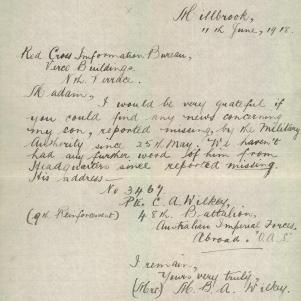 Millbrook,
11th June, 1918.
Red Cross Information Bureau,
Verco Buildings.
Nth Terrace.
Madam,
I would be very grateful if
you could find any news concerning
my son, reported missing, by the Military
Authority since 25th May. We haven't
had any further word of him from
Headquarters since reported missing.
His address—
No 3467.
Pte. C. A. Wilkey,
(9th Reinforcement) 48th Battalion,
Australian Imperial Forces.
Abroad. "O.A.S"
I remain,
Yours very truly,
(Mrs) M. B. A. Wilkey.